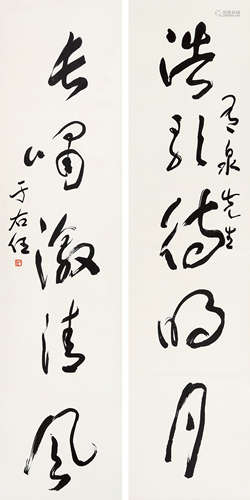 浩歌待明月
有泉先生
長嘯激清風
于右任